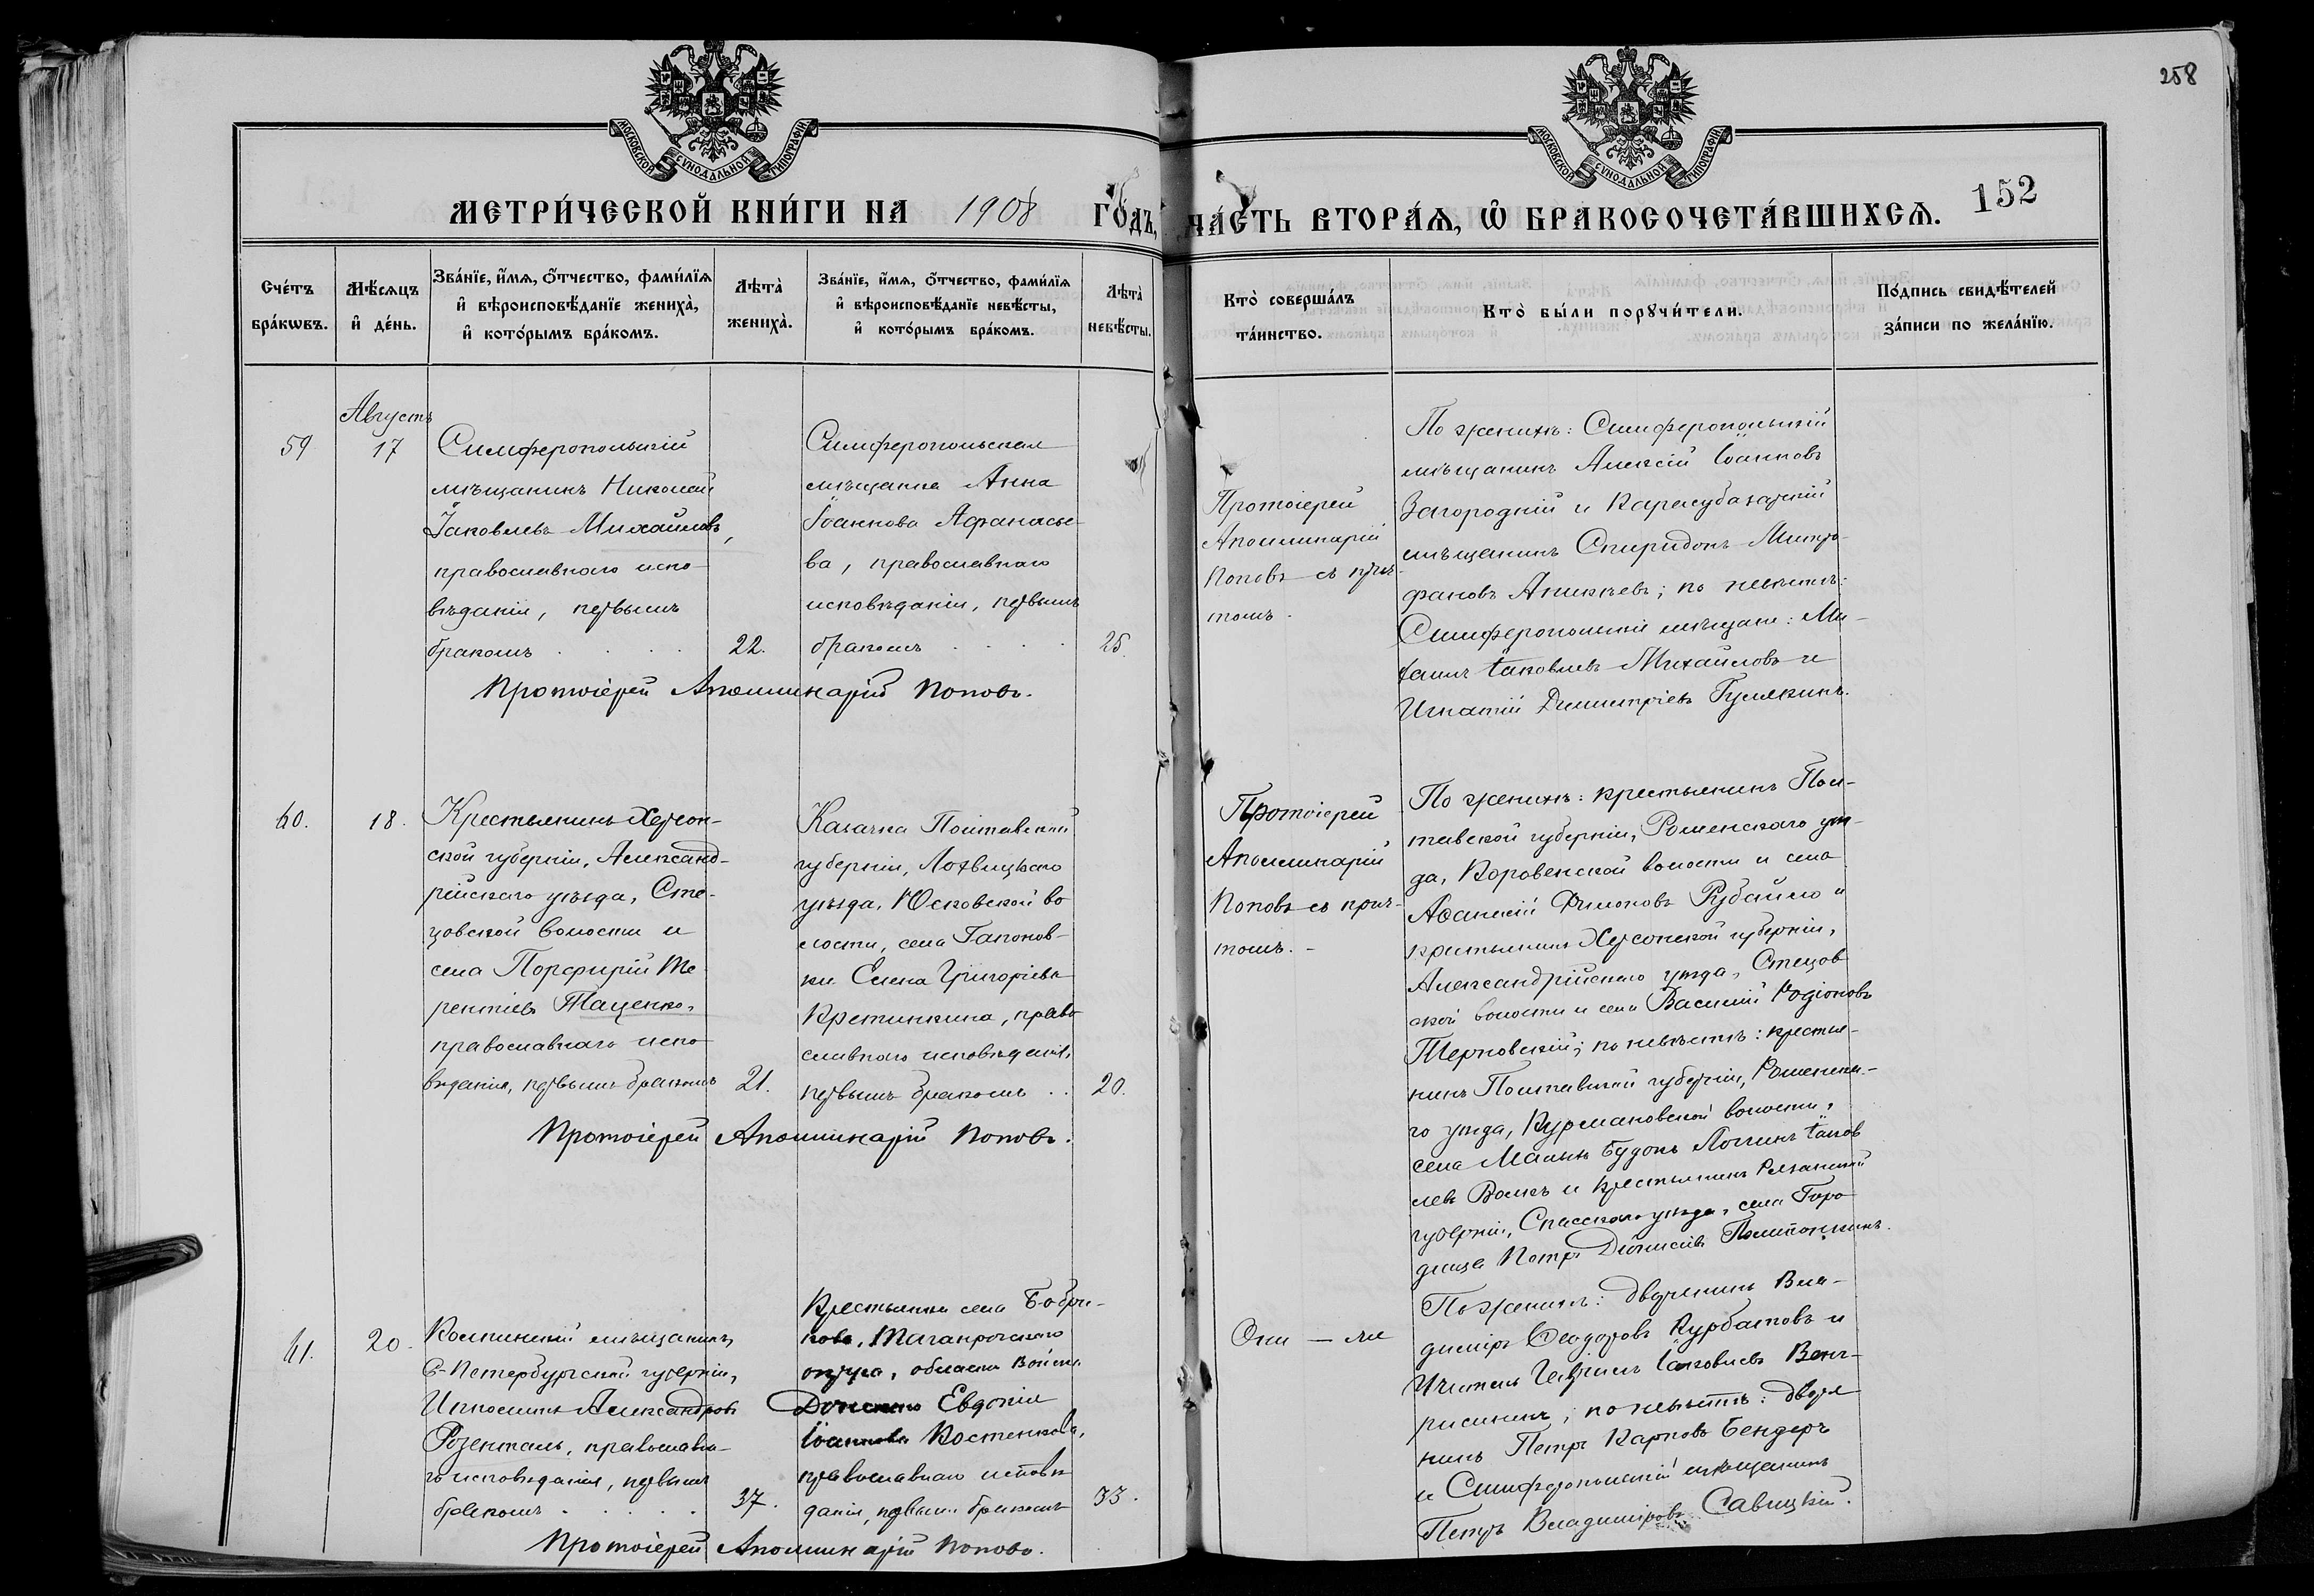 258
МОСКОВСКОЙ СУНОДАЛЬНОЙ ТИПОГРАФІИ
МОСКОВСКОЙ СУНОДАЛЬНОЙ ТИПОГРАФІИ
МЕТРИ́ЧЕСКОЙ КНИ́ГИ НА 1908 ГО́ДЪ,
ЧА́СТЬ ВТОРА́Ѧ, Ѽ БРАКОСОЧЕТА́ВШИХСѦ.
152
Сче́тъ
бра́кѡвъ.
Мѣ́сѧцъ
и҆ де́нь.
Зва́нїе, и҆́мѧ, ѻ҆́тчество, фами́лїѧ
и҆ вѣроисповѣ́данїе жениха̀,
и҆ кото́рымъ бра́комъ.
Лѣта̀
жениха̀.
Зва́нїе, и҆́мѧ, ѻ҆́тчество, фами́лїѧ
и҆ вѣроисповѣ́данїе невѣ́сты,
и҆ кото́рымъ бра́комъ.
Лѣта̀
невѣ́сты.
Кто̀ соверша́лъ
та́инство.
Кто̀ бы́ли порꙋчи́тели.
По́дпись свидѣ́телей
за́писи по жела́нїю.
59
Августъ
17
Симферопольскій
мѣщанинъ Николай
Іаковлевъ Михайловъ,
православнаго испо-
вѣданія, первымъ
бракомъ
22.
Симферопольская
мѣщанка Анна
Іоаннова Афанасье-
ва, православнаго
исповѣданія, первымъ
бракомъ
25.
Протоіерей Аполлинарій Поповъ.
Протоіерей
Аполлинарій
Поповъ съ прич-
томъ.
По женихѣ: Симферопольскій
мѣщанинъ Алексій Іоанновъ
Загородній и Карасубазарскій
мѣщанинъ Спиридонъ Митро-
фановъ Аникѣевъ; по невѣстѣ:
Симферопольскіе мѣщане: Ми-
хаилъ Іаковлевъ Михайловъ и
Игнатій Димитріевъ Гулякинъ.
60.
18.
Крестьянинъ Херсон-
ской губерніи, Александ-
рійскаго уѣзда, Сте-
цовской волости и
села Порфирій Те-
рентіевъ Таценко,
православнаго испо-
вѣданія, первымъ бракомъ
21.
Казачка Полтавской
губерніи, Лохвицкаго
уѣзда, Юсковской во
лости, села Гапонов-
ки Елена Григоріева
Кретинкина, право
славнаго исповѣданія,
первымъ бракомъ
20.
Протоіерей Аполлинарій Поповъ.
Протоіерей
Аполлинарій
Поповъ съ прич-
томъ.
По женихѣ: крестьянинъ Пол-
тавской губерніи, Роменскаго уѣз-
да, Коровенской волости и села
Аѳанасій Филоновъ Рубайло и
крестьянинъ Херсонской губерніи,
Александрійскаго уѣзда, Стецов
ской волости и села Василій Родіоновъ
Терновскій; по невѣстѣ: крестья-
нинъ Полтавской губерніи, Роменска-
го уѣзда, Курмановской волости,
села Малыя Будокъ Логинъ Іаков
левъ Волкъ и крестьянинъ Рязанской
губерніи, Спасскаго уѣзда, села Горо
дища Петръ Діонисіевъ
61.
20.
Колпинскій мѣщанинъ,
С-Петербургской губерніи,
Ипполитъ Александровъ
Розенталь, православна-
го исповѣданія, первымъ
бракомъ
37.
Крестьянка села Бобри-
кова, Таганрогскаго
округа, области Войска
Донского Евдокія
Іоаннова Костенкова,
православнаго исповѣ
данія, первымъ бракомъ
33.
Протоіерей Аполлинарій Поповъ.
Они - же
По женихѣ: дворянинъ Вла-
диміръ Ѳеодоровъ Курбатовъ и
Учитель Гавріилъ Іаковлевъ
по невѣстѣ: дворя
нинъ Петръ Карповъ Бендеръ
и Симферопольскій мѣщанинъ
Петръ Владиміровъ Савицкій.